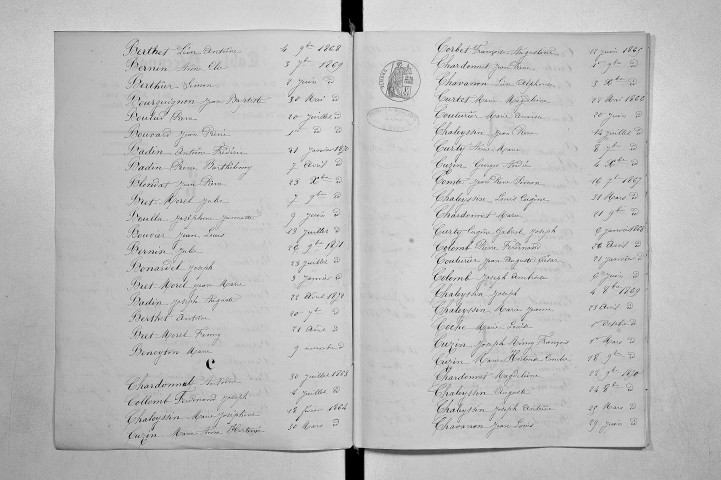 Berthet Léon Antoine 4 9bre 1868
Bernin Anne Elie 3 7bre 1869
Berthier Simon juin d
Bourguignon Jean Baptiste 30 Mai d
Boulud Pierre 20 juillet d
Bouvard Jean Pierre 1er d d
Badin Antoine Frédéric 21 janvier 1870
Badin Pierre Barthélemy 7 Avril d
Blondat Jean Pierre 23 Xbre d
Bret Morel Julie 7 9bre d
Boulla Joséphine Jeannette 9 juin d
Bouvier Jean Louis 18 juillet d
Bernin Julie 26 9bre 1871
Bonardel Joseph 23 juillet d
Bret Morel Jean Marie 3 janvier d
Badin Joseph Auguste 22 Août 1872
Berthet Antoine 20 7bre d
Bret Morel Fanny 21 Août d
Bencyton Marie 9 novembre d
C
Chardonnet Antoine 30 juillet 1863
Collomb Ferdinand Joseph 4 juillet d
Chaleyssin Marie Joséphine 18 février 1864
Cuzin Marie Anne Hortense 30 Mars d
Corbet François Augustin 12 juin 1865
Chardonnet Jean Pierre 5 9bre d
Chavanon Léon Alphonse 3 Xbre d
Curtet Marie Magdeleine 28 Mai 1866
Couturier Marie 20 juin d
Chaleyssin Jean Pierre 14 juillet d
Curty Anne Marie 8 7bre d
Cuzin George André 4 Xbre d
Comte Jean Pierre Simon 16 7bre 1867
Chaleyssin Louis Eugène 31 Mars d
Chardonnet Marie 21 9bre d
Curty Eugène Gabriel Joseph 6 janvier 1868
Colomb Pierre Ferdinand 26 Avril d
Couturier Jean Auguste César 21 janvier d
Colomb Joseph Ambroise 6 juin d
Chaleyssin Joseph 4 8bre 1869
Chaleyssin Marie Jeanne 23 Avril d
Coche Marie Louise 1er Octobre d
Cuzin Joseph Rémy François 5 Mars d
Cuzin Marie Hortense 18 9bre d
Chardonnet Magdeleine 22 9bre 1870
Chaleyssin Auguste 24 8bre d
Chaleyssin Joseph Antoine 25 Mars d
Chavanon Jean Louis 29 juin d